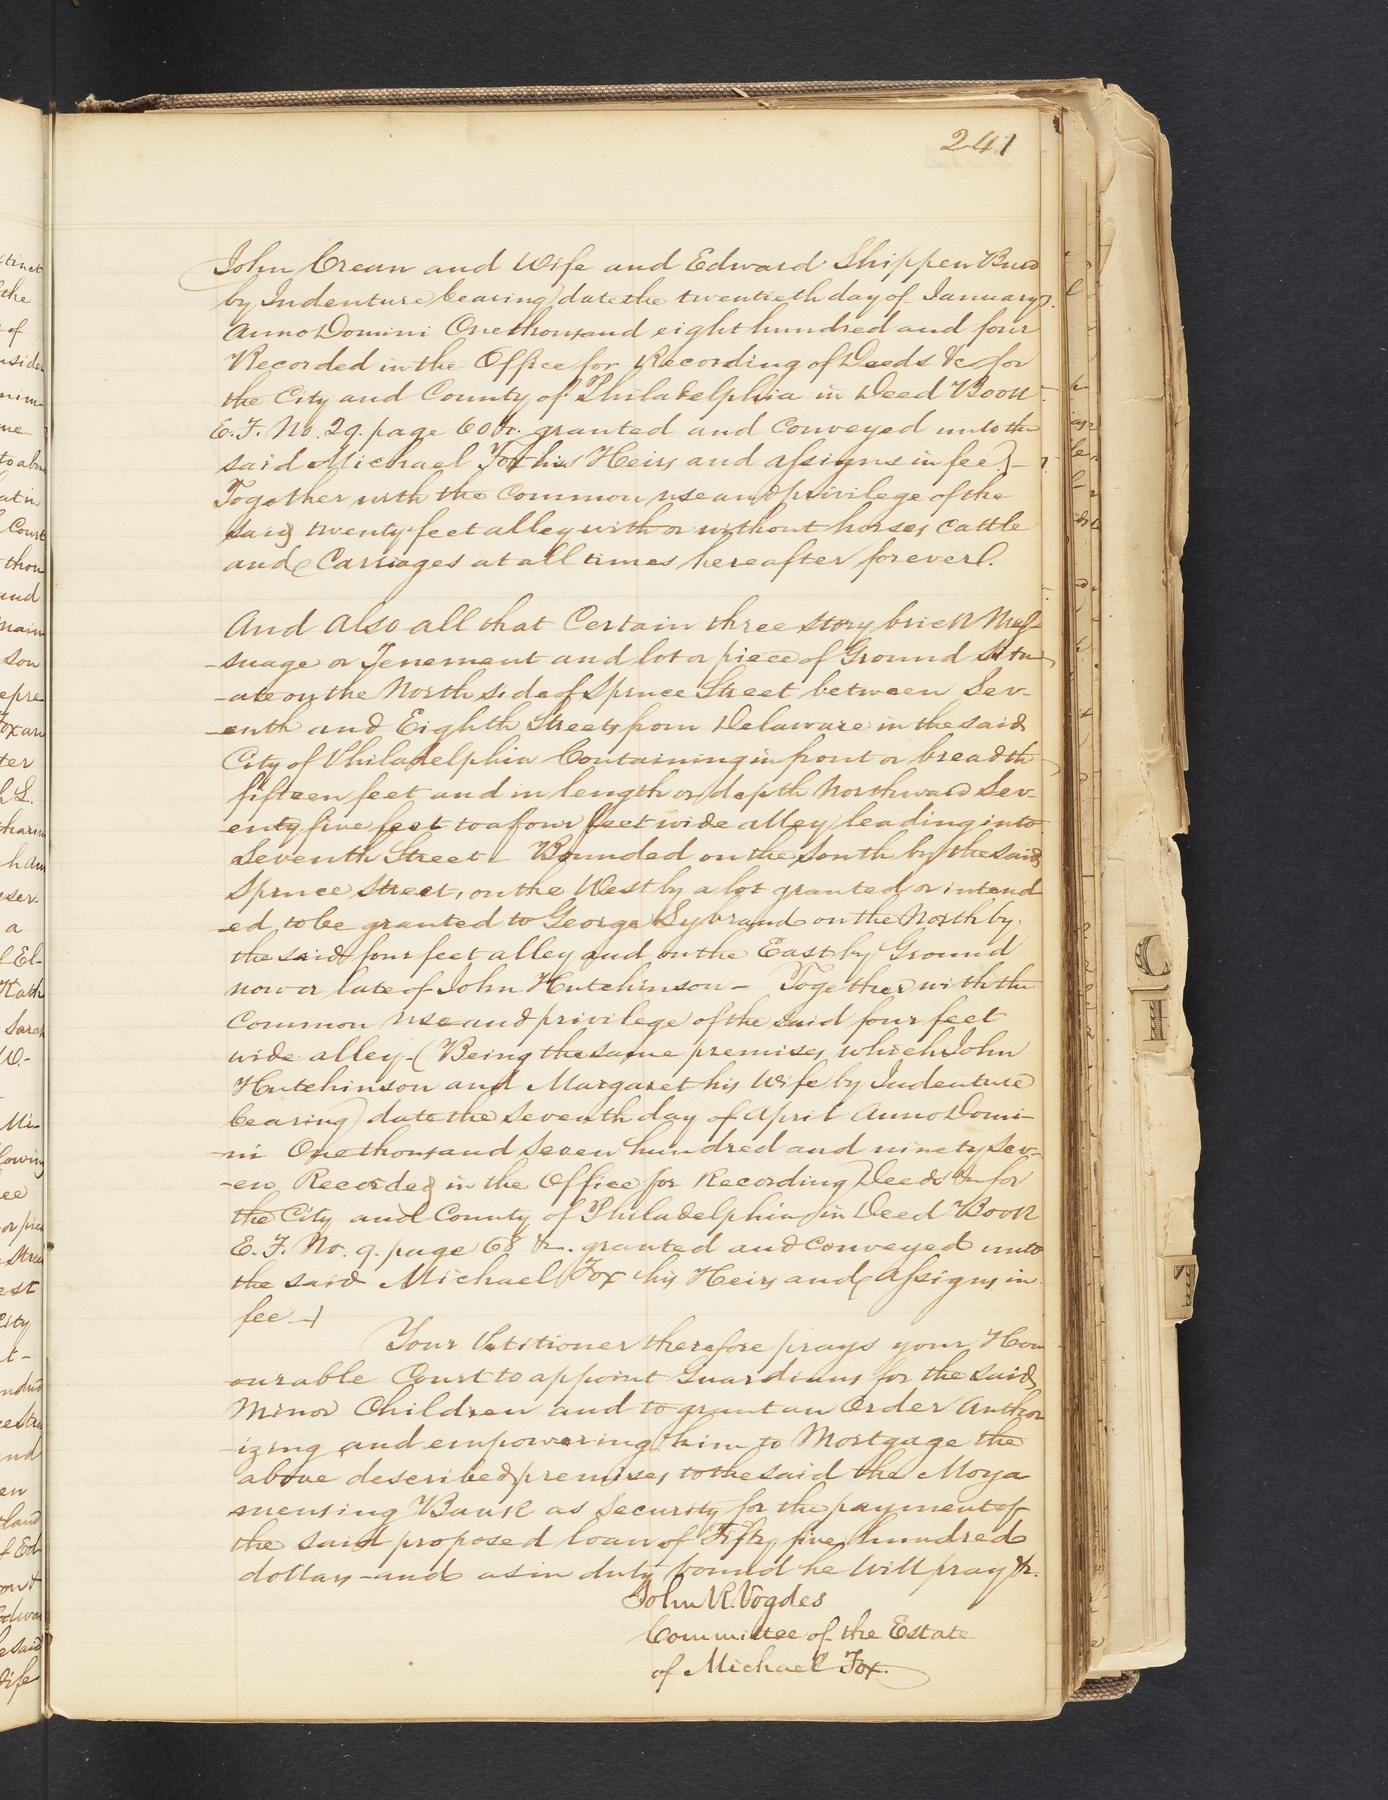 241
John Crean and Wife and Edward Shippen Burd
by Indenture bearing date the twentieth day of January
Anno Domini One thousand eight hundred and four
Recorded in the Office for Recording of Deeds &c for
the City and County of Philadelphia in Deed Book
E. F. No. 29. page 60 &c. granted and Conveyed unto the
said Michael Fox his Heirs and assigns in fee)-
Together with the Common use and privilege of the
said twenty feet alley with or without horses, Cattle
and Carriages at all times hereafter forever).
And Also all that Certain three story brick Mes-
-suage or Tenement and lot or piece of Ground Situ-
-ate on the North side of Spruce Street between Sev-
-enth and Eighth Streets from Delaware in the said
City of Philadelphia Containing in front or breadth
fifteen feet and in length or depth Northward Sev-
-enty five feet to a four feet wide alley leading into
Seventh Street - Bounded on the South by the said
Spruce Street, on the West by a lot granted or intend
-ed to be granted to George Sybrand on the North by
the said four feet alley and on the East by Ground
now or late of John Hutchinson - Together with the
Common use and privilege of the said four feet
wide alley - (Being the same premises which John
Hutchinson and Margaret his Wife by Indenture
bearing date the Seventh day of April Anno Domi-
-ni One thousand Seven hundred and ninety Sev-
-en Recorded in the Office for Recording Deeds &c for
the City and County of Philadelphia in Deed Book
E. F. No. 9. page 68 &c. granted and Conveyed unto
the said Michael Fox his Heirs and Assigns in
fee -)
Your Petitioner therefore prays your Hon
-ourable Court to appoint Guardians for the said
Minor Children and to grant an Order Author
-izing and empowering him to Mortgage the
above described premises to the said the Moya
mensing Bank as Security for the payment of
the said proposed loan of Fifty five hundred
dollars - and as in duty bound he will pray &c.
John R. Vogdes
Committee of the Estate
of Michael Fox.